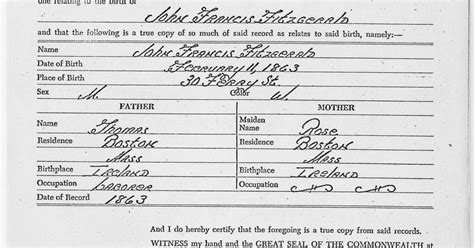 one relating to the birth of
John Francis Fitzgerald
and that the following is a true copy of so much of said record as relates to said birth, namely:—
Name John Francis Fitzgerald
Date of Birth February 11, 1863
Place of Birth 30 Ferry St.
Sex M. Color W.
FATHER MOTHER
Name Thomas Maiden Name Rose
Residence Boston Residence Boston
Mass Mass
Birthplace Ireland Birthplace Ireland
Occupation Laborer Occupation
Date of Record 1863
And I do hereby certify that the foregoing is a true copy from said records.
WITNESS my hand and the GREAT SEAL OF THE COMMONWEALTH at